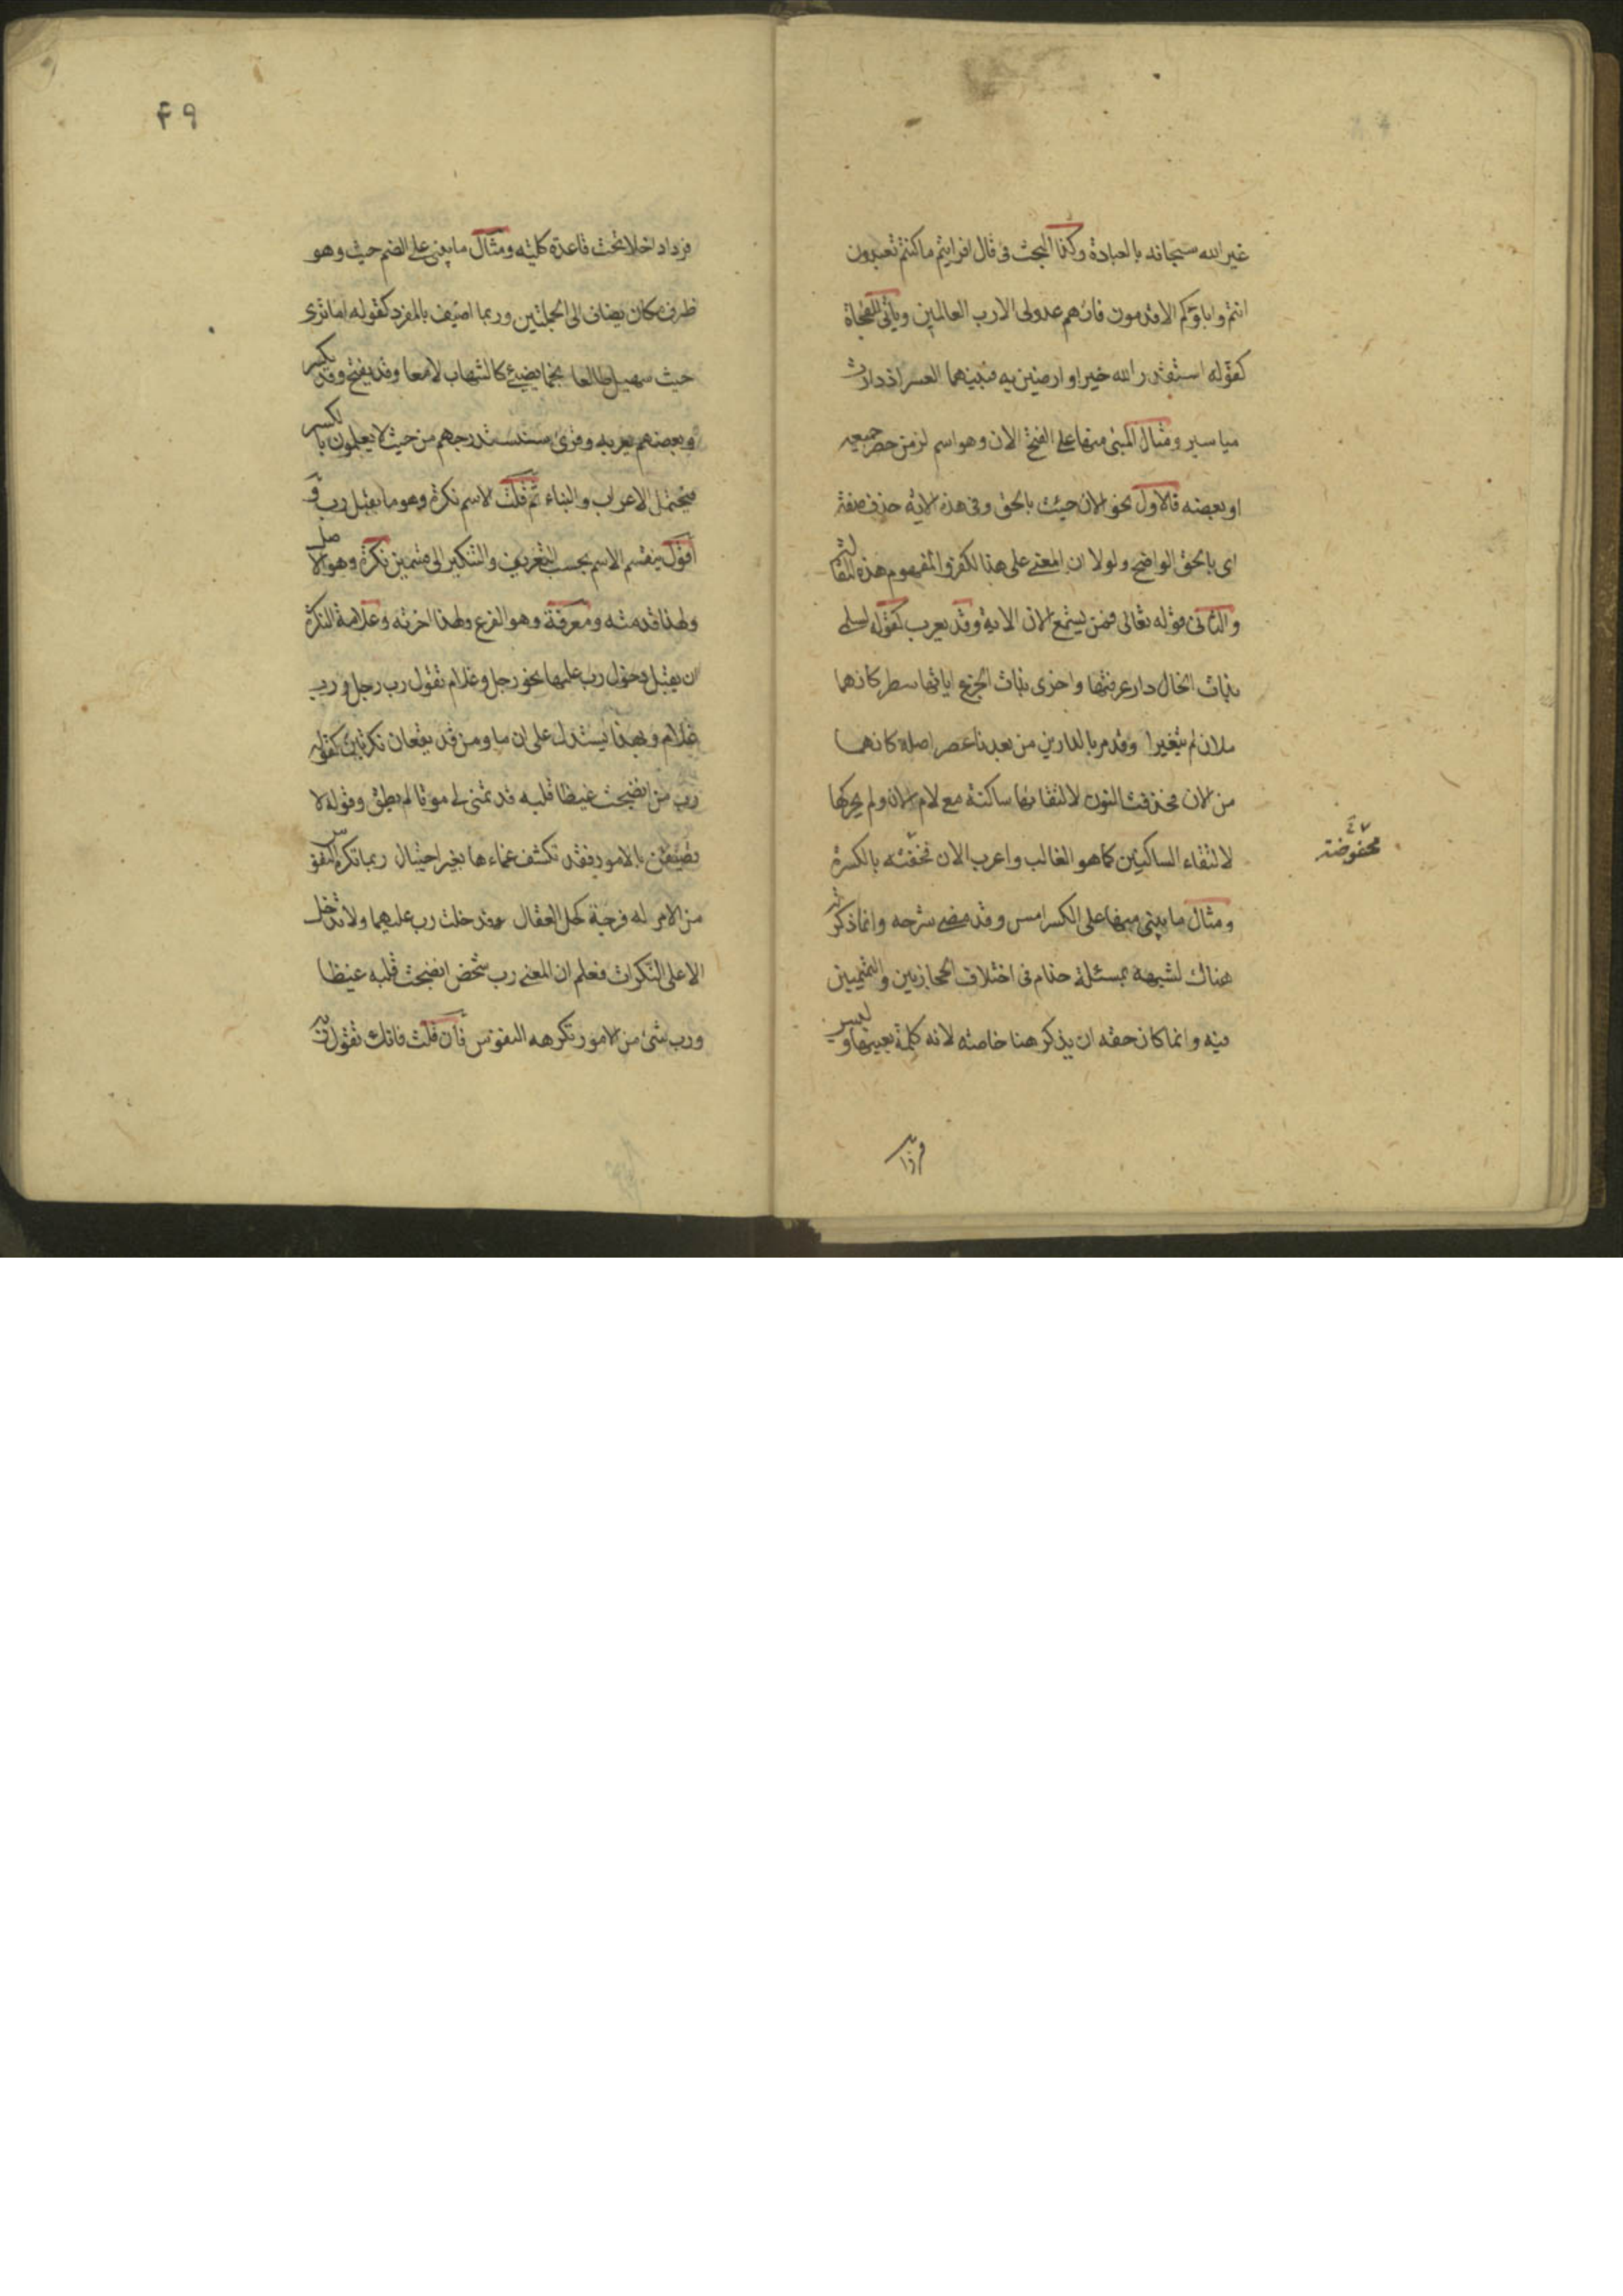 غير الله سبحانه بالعبادة وكذا البحث في قال افرايتم ما كنتم تعبدون
انتم واباؤكم الاقدمون فانهم عدو لي الا رب العالمين وياتي للمفجاة
كقوله استقدر الله خيرا وارضين به فبينما العسر اذ دارت
مياسير ومثال المبني منها على الفتح الان وهو اسم لزمن حضر جميعه
او بعضه فالاول نحو الان جيت بالحق وفي هذه الاية حذف صفة
اي بالحق الواضح ولولا ان المعنى على هذا لكفروا لمفهوم هذه المقا لة
والثاني قوله تعالى فمن يستمع الان الاية وقد يعرب كقوله لسلمى
بذات الخال دار عرفتها واخرى بذات الجزع اياتها سطر كانهما
ملان لم يتغيرا وقد مر بالدارين من بعدنا عصر اصله كانهما
من الان فحذفت النون لالتقائها ساكنة مع لام الان ولم يحركها
لالتقاء الساكنين كما هو الغالب واعرب الان فخفضه بالكسرة
ومثال ما بني منها على الكسر امس وقد مضى شرحه وانما ذكرته
هناك لشبهه بمسئلة حذام في اختلاف الحجازيين والتميميين
فيه وانما كان حقه ان يذكر هنا خاصته لانه كلمة بعينها وليس
فردا
٤٩
فردا داخلا تحت قاعدة كلية ومثال ما بني على الضم حيث وهو
ظرف مكان يضاف الى الجملتين وربما اضيف بالمفرد كقوله اما ترى
حيث سهيل طالعا نجما يضيئ كالشهاب لامعا وقد يفتح وقد يكسر
وبعضهم يعربه وقرئ سنستدرجهم من حيث لا يعلمون بالكسر
فيحتمل الاعراب والبناء ثم قلت الاسم نكرة وهو ما يقبل رب و
اقول ينقسم الاسم بحسب التعريف والتنكير الى قسمين نكرة وهو الاصل
ولهذا قدمته ومعرفة وهو الفرع ولهذا اخرته وعلامة النكرة
ان يقبل دخول رب عليها نحو رجل وغلام تقول رب رجل ورب
غلام وبهذا يستدل على ان ما ومن قد يقعان نكرتين كقوله
رب من انضجت غيظا قلبه قد تمنى لي موتا لم يطق وقوله لا
تضيقن بالامور فقد تكشف غماءها بغير احتيال ربما تكره النفوس
من الامر له فرجة كحل العقال وقد دخلت رب عليهما ولا تدخل
الا على النكرات فعلم ان المعنى رب شخص انضجت قلبه غيظا
ورب شئ من الامور تكرهه النفوس فان قلت فانك تقول